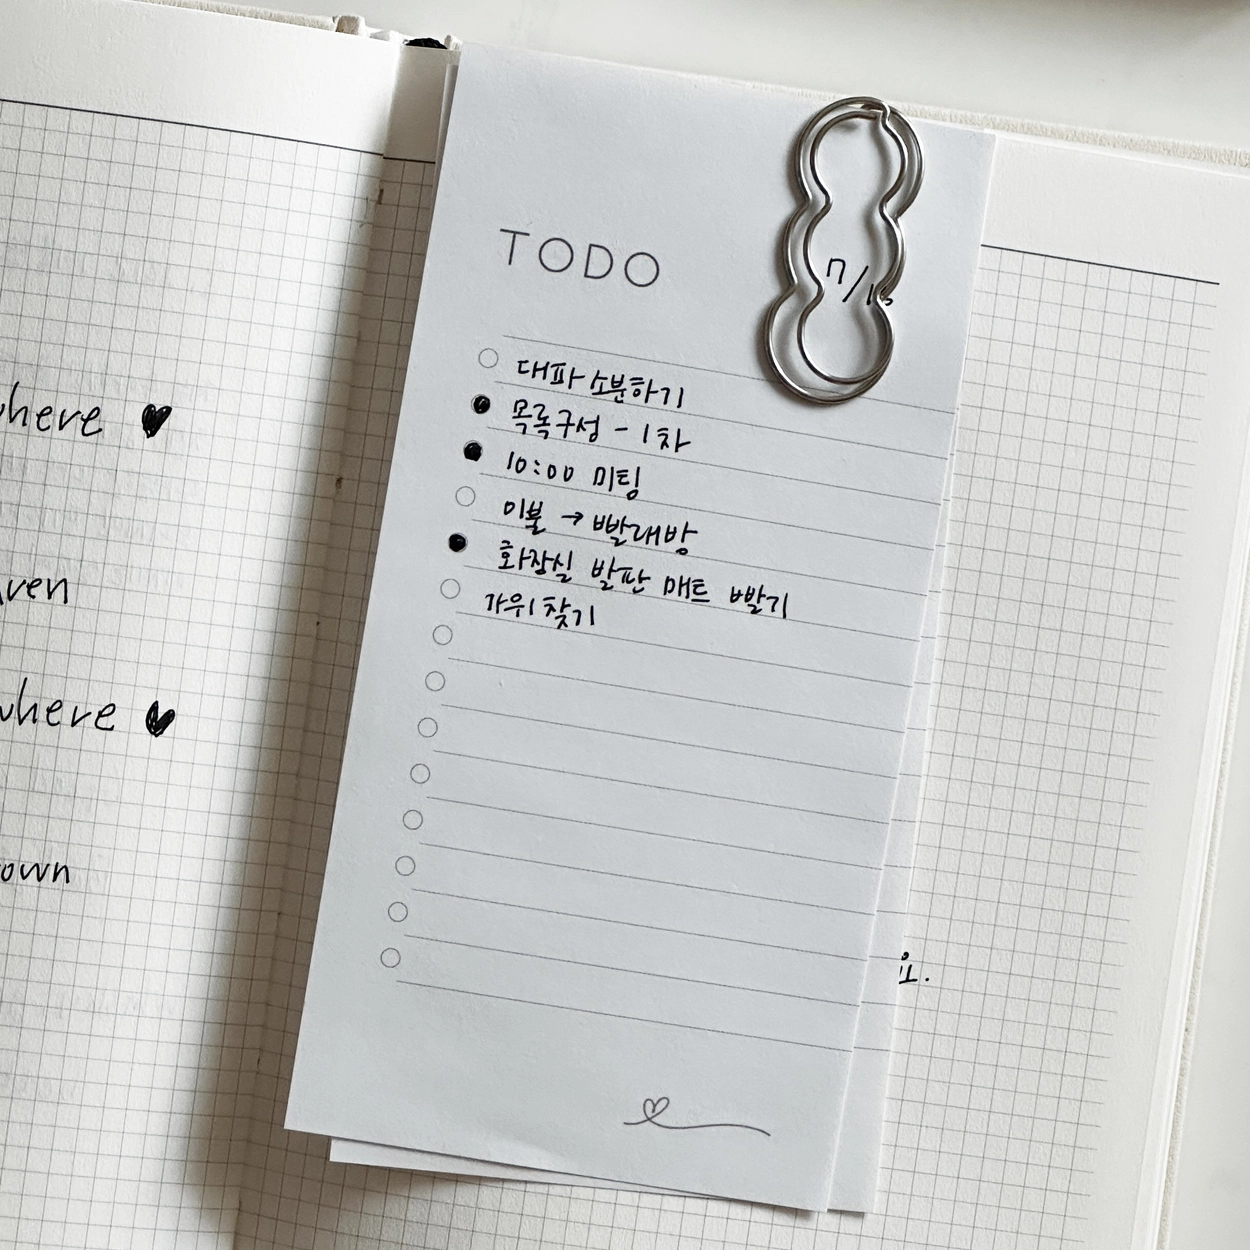 here ♥
ven
where ♥
own
TODO
7/1
대파 소분하기
목록구성 - 1차
10:00 미팅
이불 → 빨래방
화장실 발판 매트 빨기
가위 찾기
요.